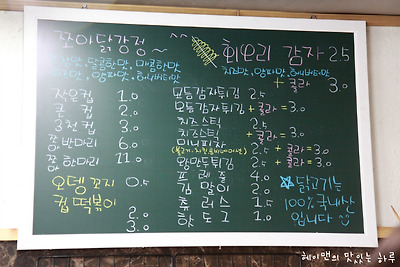 쪼아닭강정~
달콤한맛, 매콤한맛
양파맛, 허니버터맛
작은컵 1.0
큰 컵 2.0
3천컵 3.0
쫑.반마리 6.0
쫑.한마리 11.0
오뎅 꼬지 0.5
컵 떡볶이
2.0
3.0
회오리 감자 2.5
치즈맛, 양파맛, 허니버터맛
+ 콜라 3.0
모듬감자튀김 2.5
모듬감자튀김 + 콜라 = 3.0
치즈스틱 2.5
치즈스틱 + 콜라 = 3.0
미니피자 2.5 + 콜라 = 3.0
왕만두튀김 2.5 + 콜라 = 3.0
프레즐 4.0
김말이 2.0
츄러스 1.5
핫도그 1.0
닭고기는
100% 국내산
입니다
헤이맨의 맛있는 하루